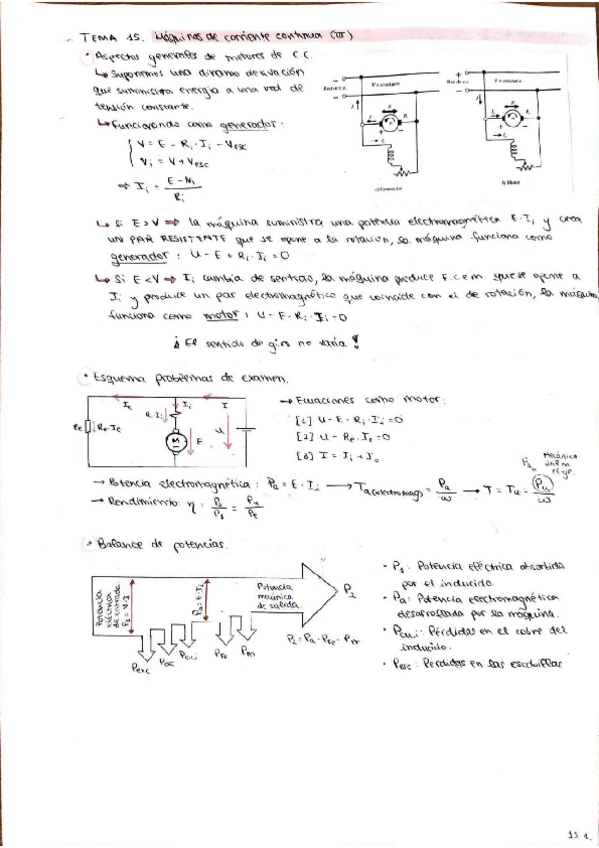 TEMA 15. Máquinas de corriente continua (III)
• Aspectos generales de motores de C.C.
↳ Suponemos una dinamo derivación
que suministra energía a una red de
tensión constante.
↳ Funcionando como generador:
V = E - Ri · Ii - Vesc
Vi = V + Vesc
⇒ Ii = E - Vi / Ri
V = constante
a) Generador
V = constante
b) Motor
↳ Si E > V ⇒ la máquina suministra una potencia electromagnética E·Ii y crea
UN PAR RESISTENTE que se opone a la rotación, la máquina funciona como
generador: U - E + Ri · Ii = 0
↳ Si E < V ⇒ Ii cambia de sentido, la máquina produce F.c.e.m que se opone a
Ii y produce un par electromagnético que coincide con el de rotación, la máquina
funciona como motor: U - E - Ri · Ii = 0
¡ El sentido de giro no varía !
• Esquema problemas de examen.
Ie
Ii
I
Re
Re·Ie
Ri·Ii
M
E
U
→ Ecuaciones como motor:
[1] U - E - Ri · Ii = 0
[2] U - Re · Ie = 0
[3] I = Ii + Ie
→ Potencia electromagnética: Pa = E · Ii → Ta = Pa / ω → T = Tu = Pu / ω
→ Rendimiento: η = P2 / P1 = Pu / Pe
• Balance de potencias.
Potencia
eléctrica
de entrada
P1 = V·I
Pa = E·Ii
Potencia
mecánica
de salida.
P2
Pexc
Pesc
Pcui
PFe
Pm
P2 = Pa - PFe - Pm
• P1: Potencia eléctrica absorbida
por el inducido.
• Pa: Potencia electromagnética
desarrollada por la máquina.
• Pcui: Pérdidas en el cobre del
inducido.
• Pesc: Perdidas en las escobillas